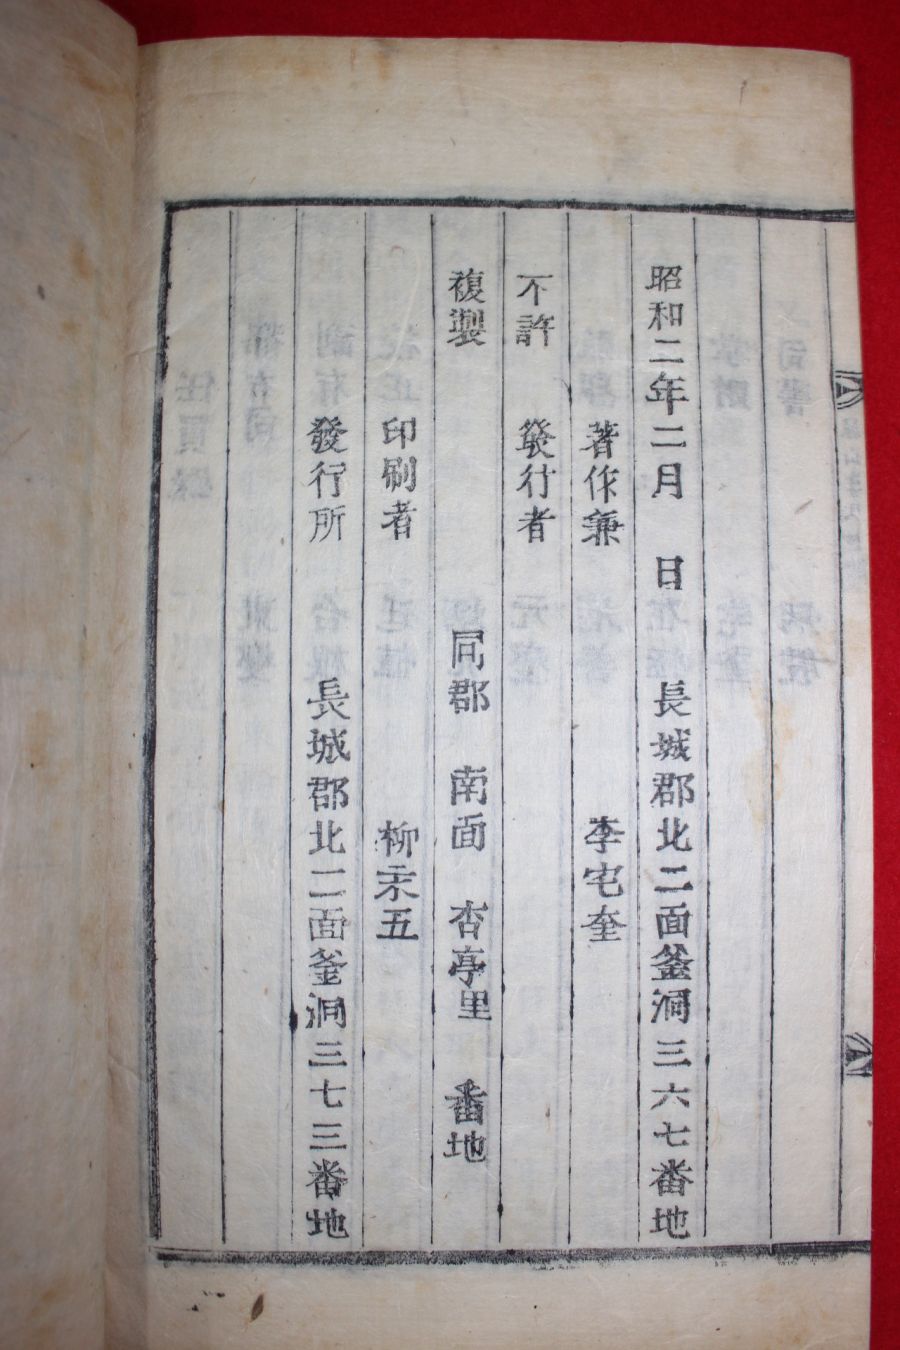 昭和二年二月 日 長城郡北二面釜洞三六七番地
著作兼 李宅奎
不許 發行者
複製 同郡 南面 杏亭里 番地
印刷者 柳未五
發行所 長城郡北二面釜洞三七三番地